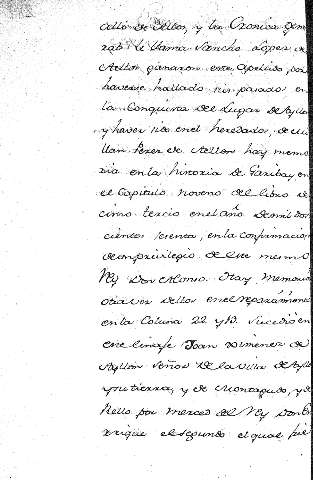 callo de ellos, y la Cronica gene
ral le llama Sancho Lopez de
Aellon ganaron este Apellido, por
haverse hallado sus pasados en
la Conquista del Lugar de Ayllo
y haver sido en el heredados, de Mi
llan Perez de Aellon hay memo
ria en la historia de Garibay en
el Capitulo noveno del libro de
cimo tercio en el año de mil dos
cientos setenta, en la confirmacion
de un privilegio de este mesmo
Rey Don Alonso. Hay Memoria
otra vez dellos en el repartimiento
en la Coluna 22 y D. Sucedió en
ese linaje Joan Ximenez de
Ayllon Señor de la villa de Ayllo
y su tierra, y de Montagudo, y de
Riello por merced del Rey Don En
rrique el segundo el qual fue